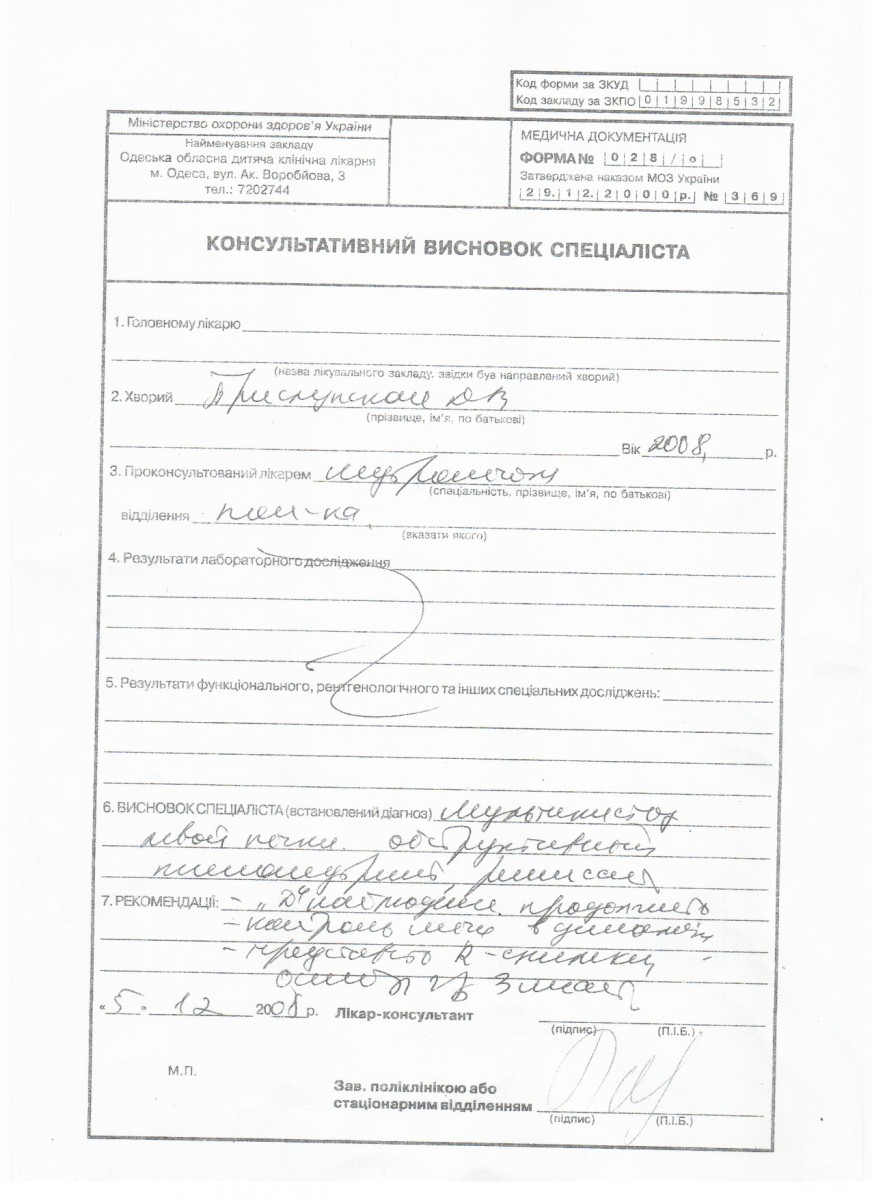 Код форми за ЗКУД
Код закладу за ЗКПО 01998532
Міністерство охорони здоров'я України
Найменування закладу
Одеська обласна дитяча клінічна лікарня
м. Одеса, вул. Ак. Воробйова, 3
тел.: 7202744
МЕДИЧНА ДОКУМЕНТАЦІЯ
ФОРМА № 028/о
Затверджена наказом МОЗ України
29.12.2000р. № 369
КОНСУЛЬТАТИВНИЙ ВИСНОВОК СПЕЦІАЛІСТА
1. Головному лікарю
(назва лікувального закладу, звідки був направлений хворий)
2. Хворий
(прізвище, ім'я, по батькові)
Вік 2008, р.
3. Проконсультований лікарем
(спеціальність, прізвище, ім'я, по батькові)
відділення пол-ка
(вказати якого)
4. Результати лабораторного дослідження
5. Результати функціонального, рентгенологічного та інших спеціальних досліджень:
6. ВИСНОВОК СПЕЦІАЛІСТА (встановлений діагноз) Мультикистоз
левой почки. обструктивный
пиелонефрит,
7. РЕКОМЕНДАЦІЇ: - „Д" продолжить
- контроль мочи в динамике
- R-снимки
осмотр 3
« 5 » 12 2008 р. Лікар-консультант
(підпис) (П.І.Б.)
М.П.
Зав. поліклінікою або
стаціонарним відділенням
(підпис) (П.І.Б.)